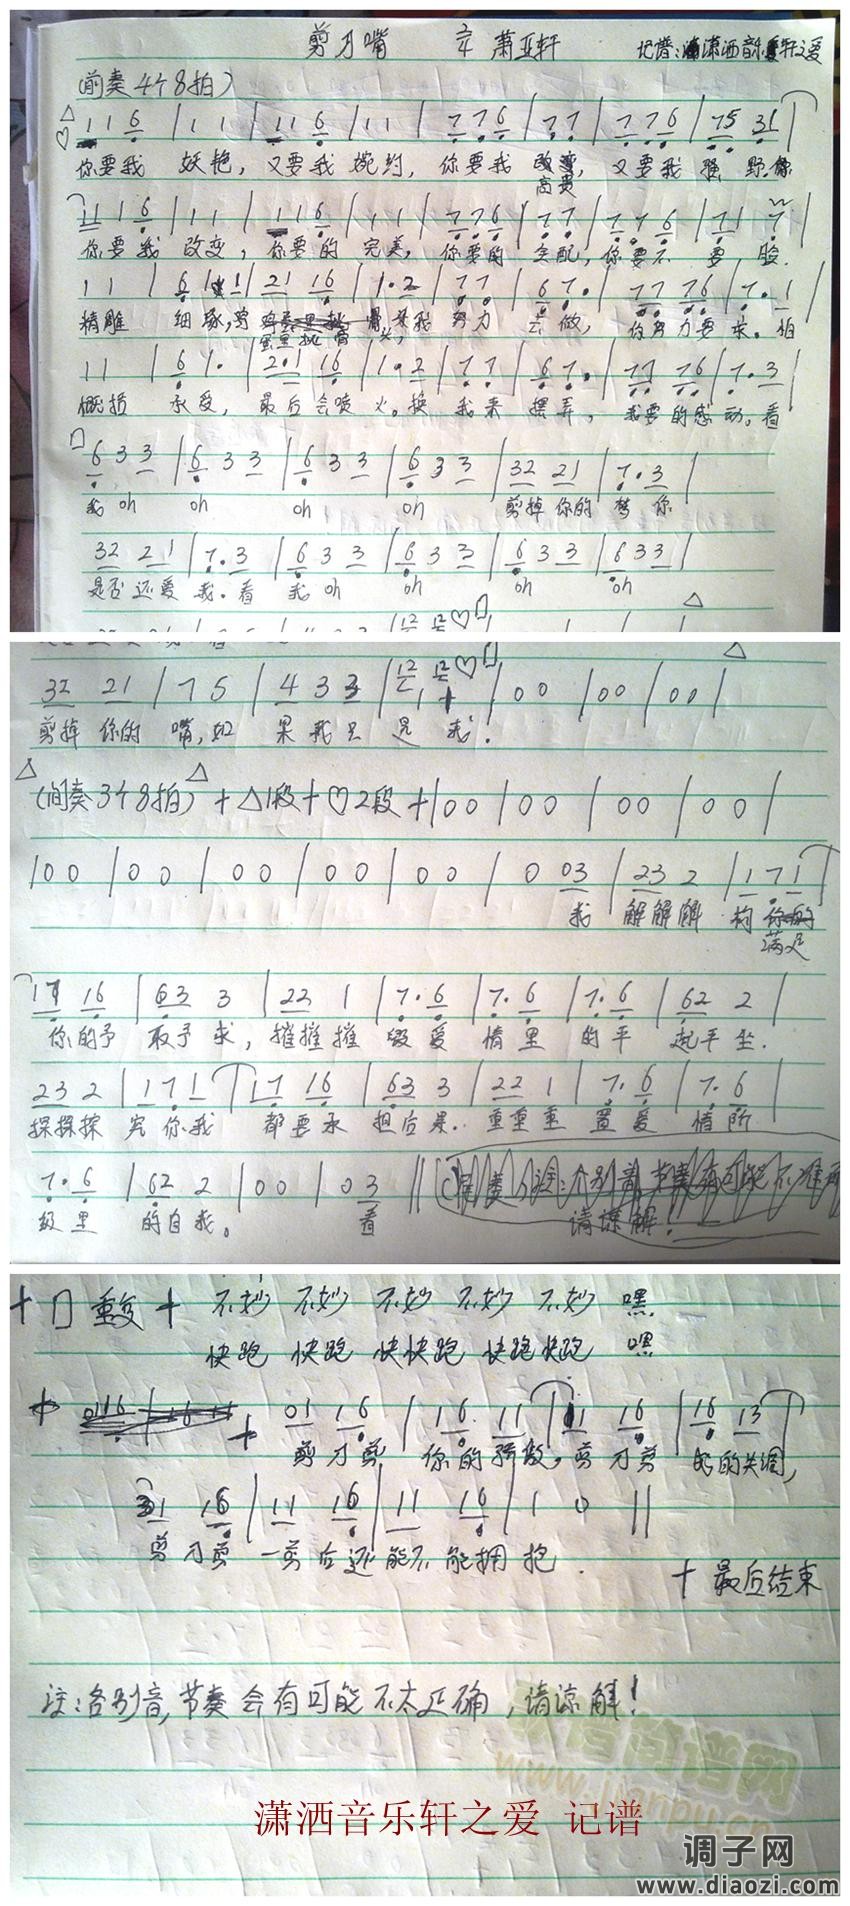 剪刀嘴 2/4 萧亚轩 记谱:潇洒音乐轩之爱
(前奏4个8拍)
1 1 6 | 1 1 | 1 1 6 | 1 1 | 7 7 6 | 7 7 | 7 7 6 | 75 31 |
你要我 妖艳, 又要我 婉约, 你要我 高贵, 又要我 野.
11 1 6 | 1 1 | 1 1 6 | 1 1 | 7 7 6 | 7 7 | 7 7 6 | 71 7 |
你要我 改变, 你要的 完美, 你要的 全配, 你要不 要 脸.
1 1 | 6 1 1 | 21 16 | 1. 2 | 7 7 | 6 7. | 77 76 | 7. 1 |
精雕 细琢, 蛋里挑 骨头, 我 努力 去做, 你努力要求. 怕
1 1 | 6 1. | 2.1 16 | 1. 2 | 7 7 | 6 7. | 77 76 | 7. 3 |
承受, 最后会喷火。换 我来 摆弄, 我要的感动。看
6 3 3 | 6 3 3 | 6 3 3 | 6 3 3 | 32 21 | 7. 3 |
我 oh oh oh oh 剪掉你的 嘴 你
32 21 | 7. 3 | 6 3 3 | 6 3 3 | 6 3 3 | 6 3 3 |
是否还爱我. 看 我 oh oh oh oh
32 21 | 7 5 | 4 3 3 | 12 12 | 00 | 00 | 00 |
剪掉你的 嘴, 如 果我只 是 我.
(间奏3个8拍) + △1段 + ♡2段 + | 00 | 00 | 00 | 00 |
| 00 | 00 | 00 | 00 | 00 | 0 03 | 23 2 | 1 7 1 |
我 解解解 构 你
满足
17 16 | 63 3 | 22 1 | 7. 6 | 7. 6 | 7. 6 | 62 2 |
你的予 取予求, 摧摧摧 毁爱 情里 的平 起平坐.
23 2 | 1 7 1 | 17 16 | 63 3 | 22 1 | 7. 6 | 7. 6 |
探探探 究你我 都要承 担后果. 重重重 置爱 情阶
7. 6 | 62 2 | 00 | 0 3 ||
级里 的自我。 看
请谅解.
+ □ 重复 + 不妙 不妙 不妙 不妙 不妙 嘿
快跑 快跑 快快跑 快跑快跑 嘿
+ + 01 16 | 16 11 | 11 16 | 16 13 |
剪刀剪 你的骄傲, 剪刀剪 的失调,
31 16 | 11 16 | 11 16 | 1 0 ||
剪刀剪 一剪后还能不能拥抱.
+ 最后结束
注:各别音,节奏会有可能不太正确,请谅解!
歌谱简谱网
www.jianpu.cn
潇洒音乐轩之爱 记谱
调子网
www.diaozi.com